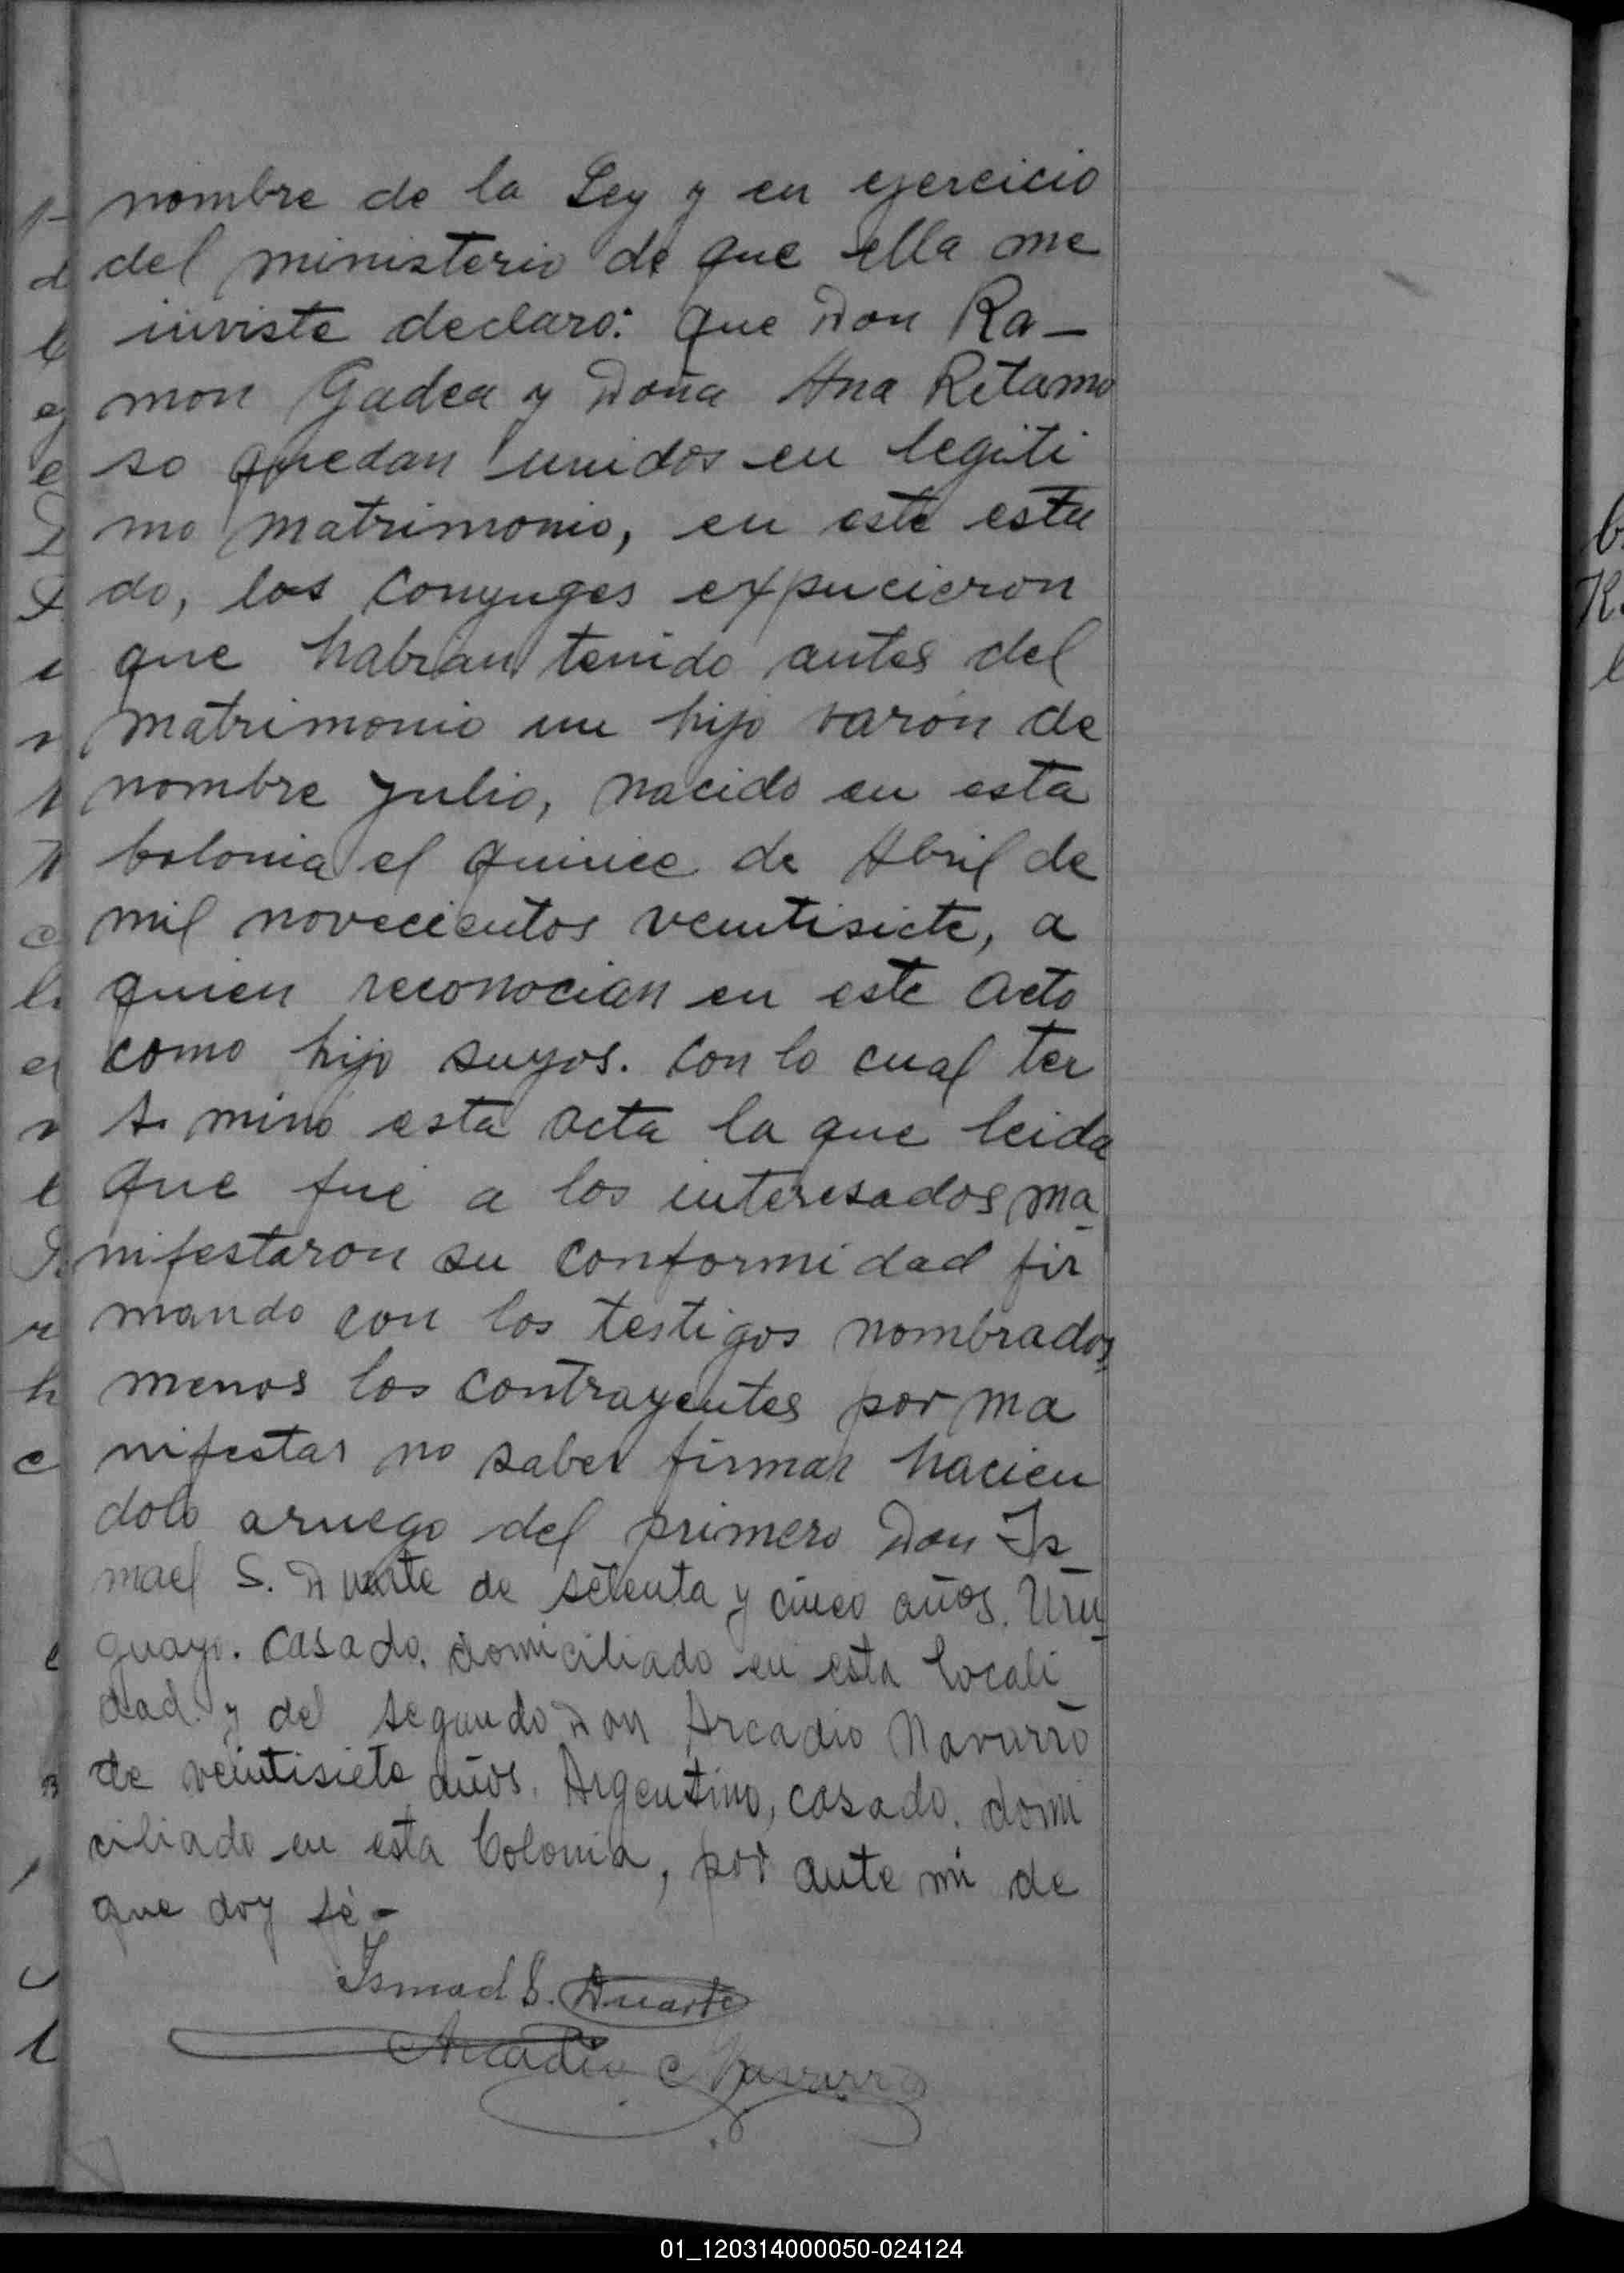 nombre de la Ley y en ejercicio
del ministerio de que ella me
inviste declaro: que Don Ra-
mon Gadea y Doña Ana Retamo
so quedan unidos en legiti
mo matrimonio, en este esta
do, los conyuges expucieron
que habian tenido antes del
matrimonio un hijo varón de
nombre Julio, nacido en esta
Colonia el quince de Abril de
mil novecientos veintisiete, a
quien reconocian en este acto
como hijo suyos. con lo cual ter
minó esta acta la que leida
que fué a los interesados ma
nifestaron su conformidad fir
mando con los testigos nombrados,
menos los contrayentes por ma
nifestar no saber firmar hacien
dolo aruego del primero Don Is
mael S. Duarte de setenta y cinco años. Uru
guayo. casado. domiciliado en esta locali
dad. y del segundo Don Arcadio Navarro
de veintisiete años. Argentino, casado. domi
ciliado en esta Colonia, por ante mi de
que doy fé-
Ismael S. Duarte
Arcadio Navarro
01_120314000050-024124